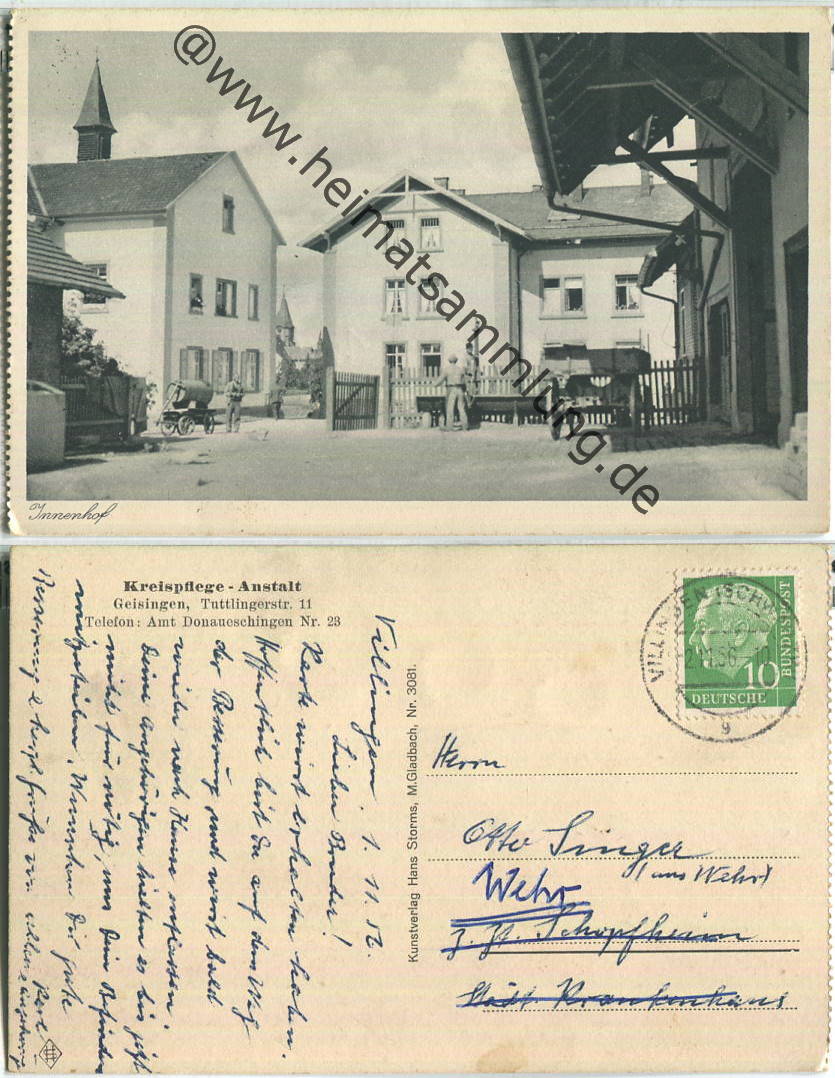 @www.heimatsammlung.de
Innenhof
Kreispflege - Anstalt
Geisingen, Tuttlingerstr. 11
Telefon: Amt Donaueschingen Nr. 23
Villingen. 1. 11. 56.
Lieber Bruder!
Karte wirst erhalten haben.
Hoffentlich bist Du auf dem Weg
der Besserung und wirst bald
wieder nach Hause entlassen.
Deine Angehörigen hielten es bis jetzt
nicht für nötig, uns Dein Befinden
mitzuteilen. Wünschen Dir gute
Besserung & herzl. Grüße von allen
Karl
Kunstverlag Hans Storms, M.Gladbach, Nr. 3081.
VILLINGEN (SCHW
2.11.56. 10
g
10
DEUTSCHE
BUNDESPOST
Herrn
Otto Singer
(aus Wehr)
Wehr
z. Zt. Schopfheim
Städt. Krankenhaus